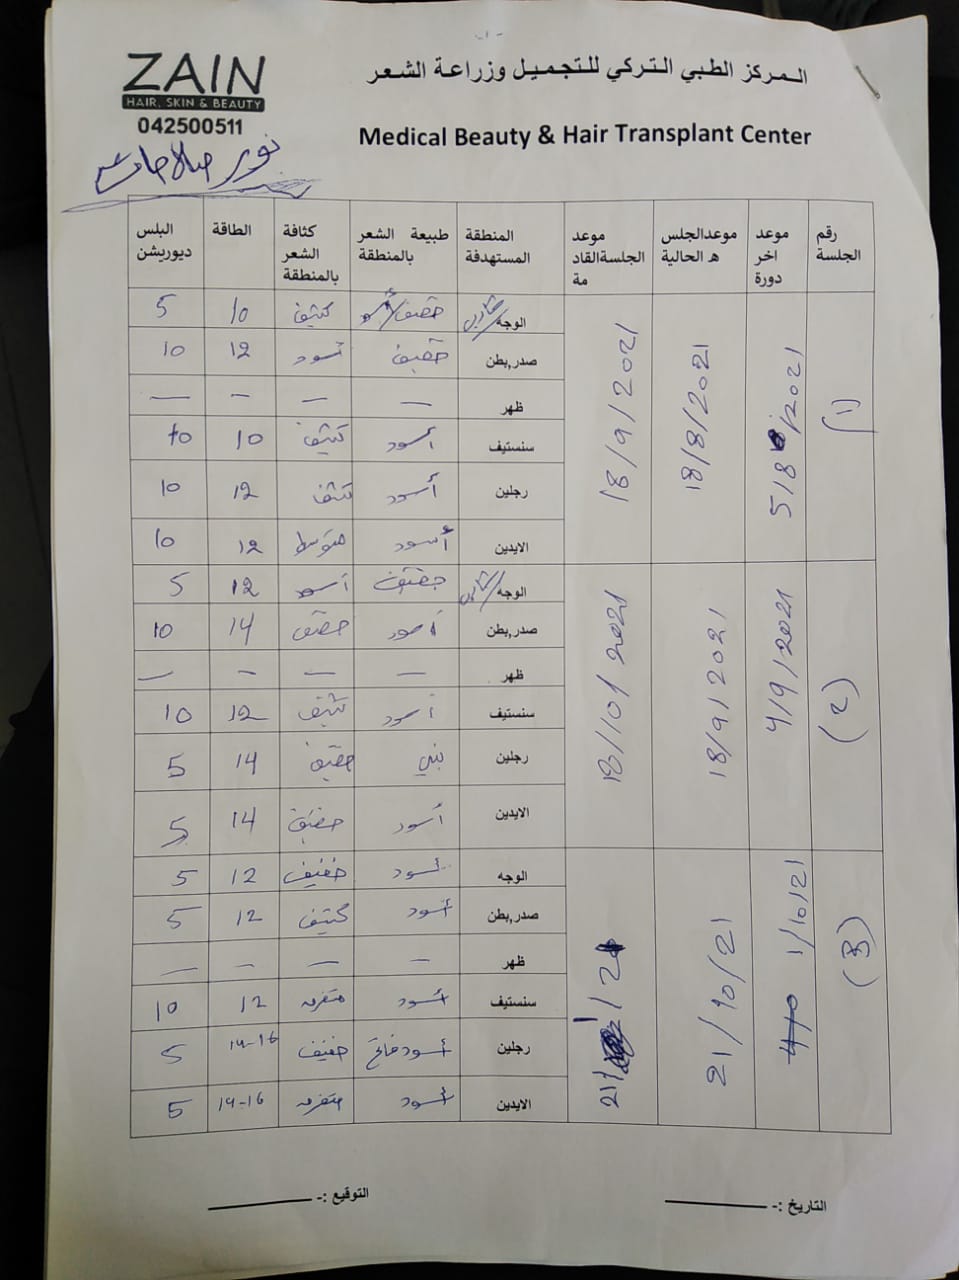 ZAIN
HAIR, SKIN & BEAUTY
042500511
المركز الطبي التركي للتجميل وزراعة الشعر
Medical Beauty & Hair Transplant Center
نور
رقم الجلسة | موعد اخر دورة | موعدالجلس ه الحالية | موعد الجلسةالقاد مة | المنطقة المستهدفة | طبيعة الشعر بالمنطقة | كثافة الشعر بالمنطقة | الطاقة | البلس ديوريشن
(1) | 5/8/2021 | 18/8/2021 | 18/9/2021
الوجه | خفيف/أسود | كثيف | 10 | 5
صدر,بطن | خفيف | أسود | 12 | 10
ظهر | — | — | — | —
سنستيف | أسود | كثيف | 10 | 10
رجلين | أسود | كثف | 12 | 10
الايدين | أسود | متوسط | 12 | 10
(2) | 4/9/2021 | 18/9/2021 | 18/10/2021
الوجه | خفيف | أسود | 12 | 5
صدر,بطن | أسود | خفيف | 14 | 10
ظهر | — | — | — | —
سنستيف | أسود | كثيف | 12 | 10
رجلين | بني | خفيف | 14 | 5
الايدين | أسود | خفيف | 14 | 5
(3) | 1/10/21 | 21/10/21 | 21/ /21
الوجه | أسود | خفيف | 12 | 5
صدر,بطن | أسود | كثيف | 12 | 5
ظهر | — | — | — | —
سنستيف | أسود | متفرمه | 12 | 10
رجلين | أسود فاتح | خفيف | 14-16 | 5
الايدين | أسود | متفرمه | 14-16 | 5
التاريخ :-
التوقيع :-